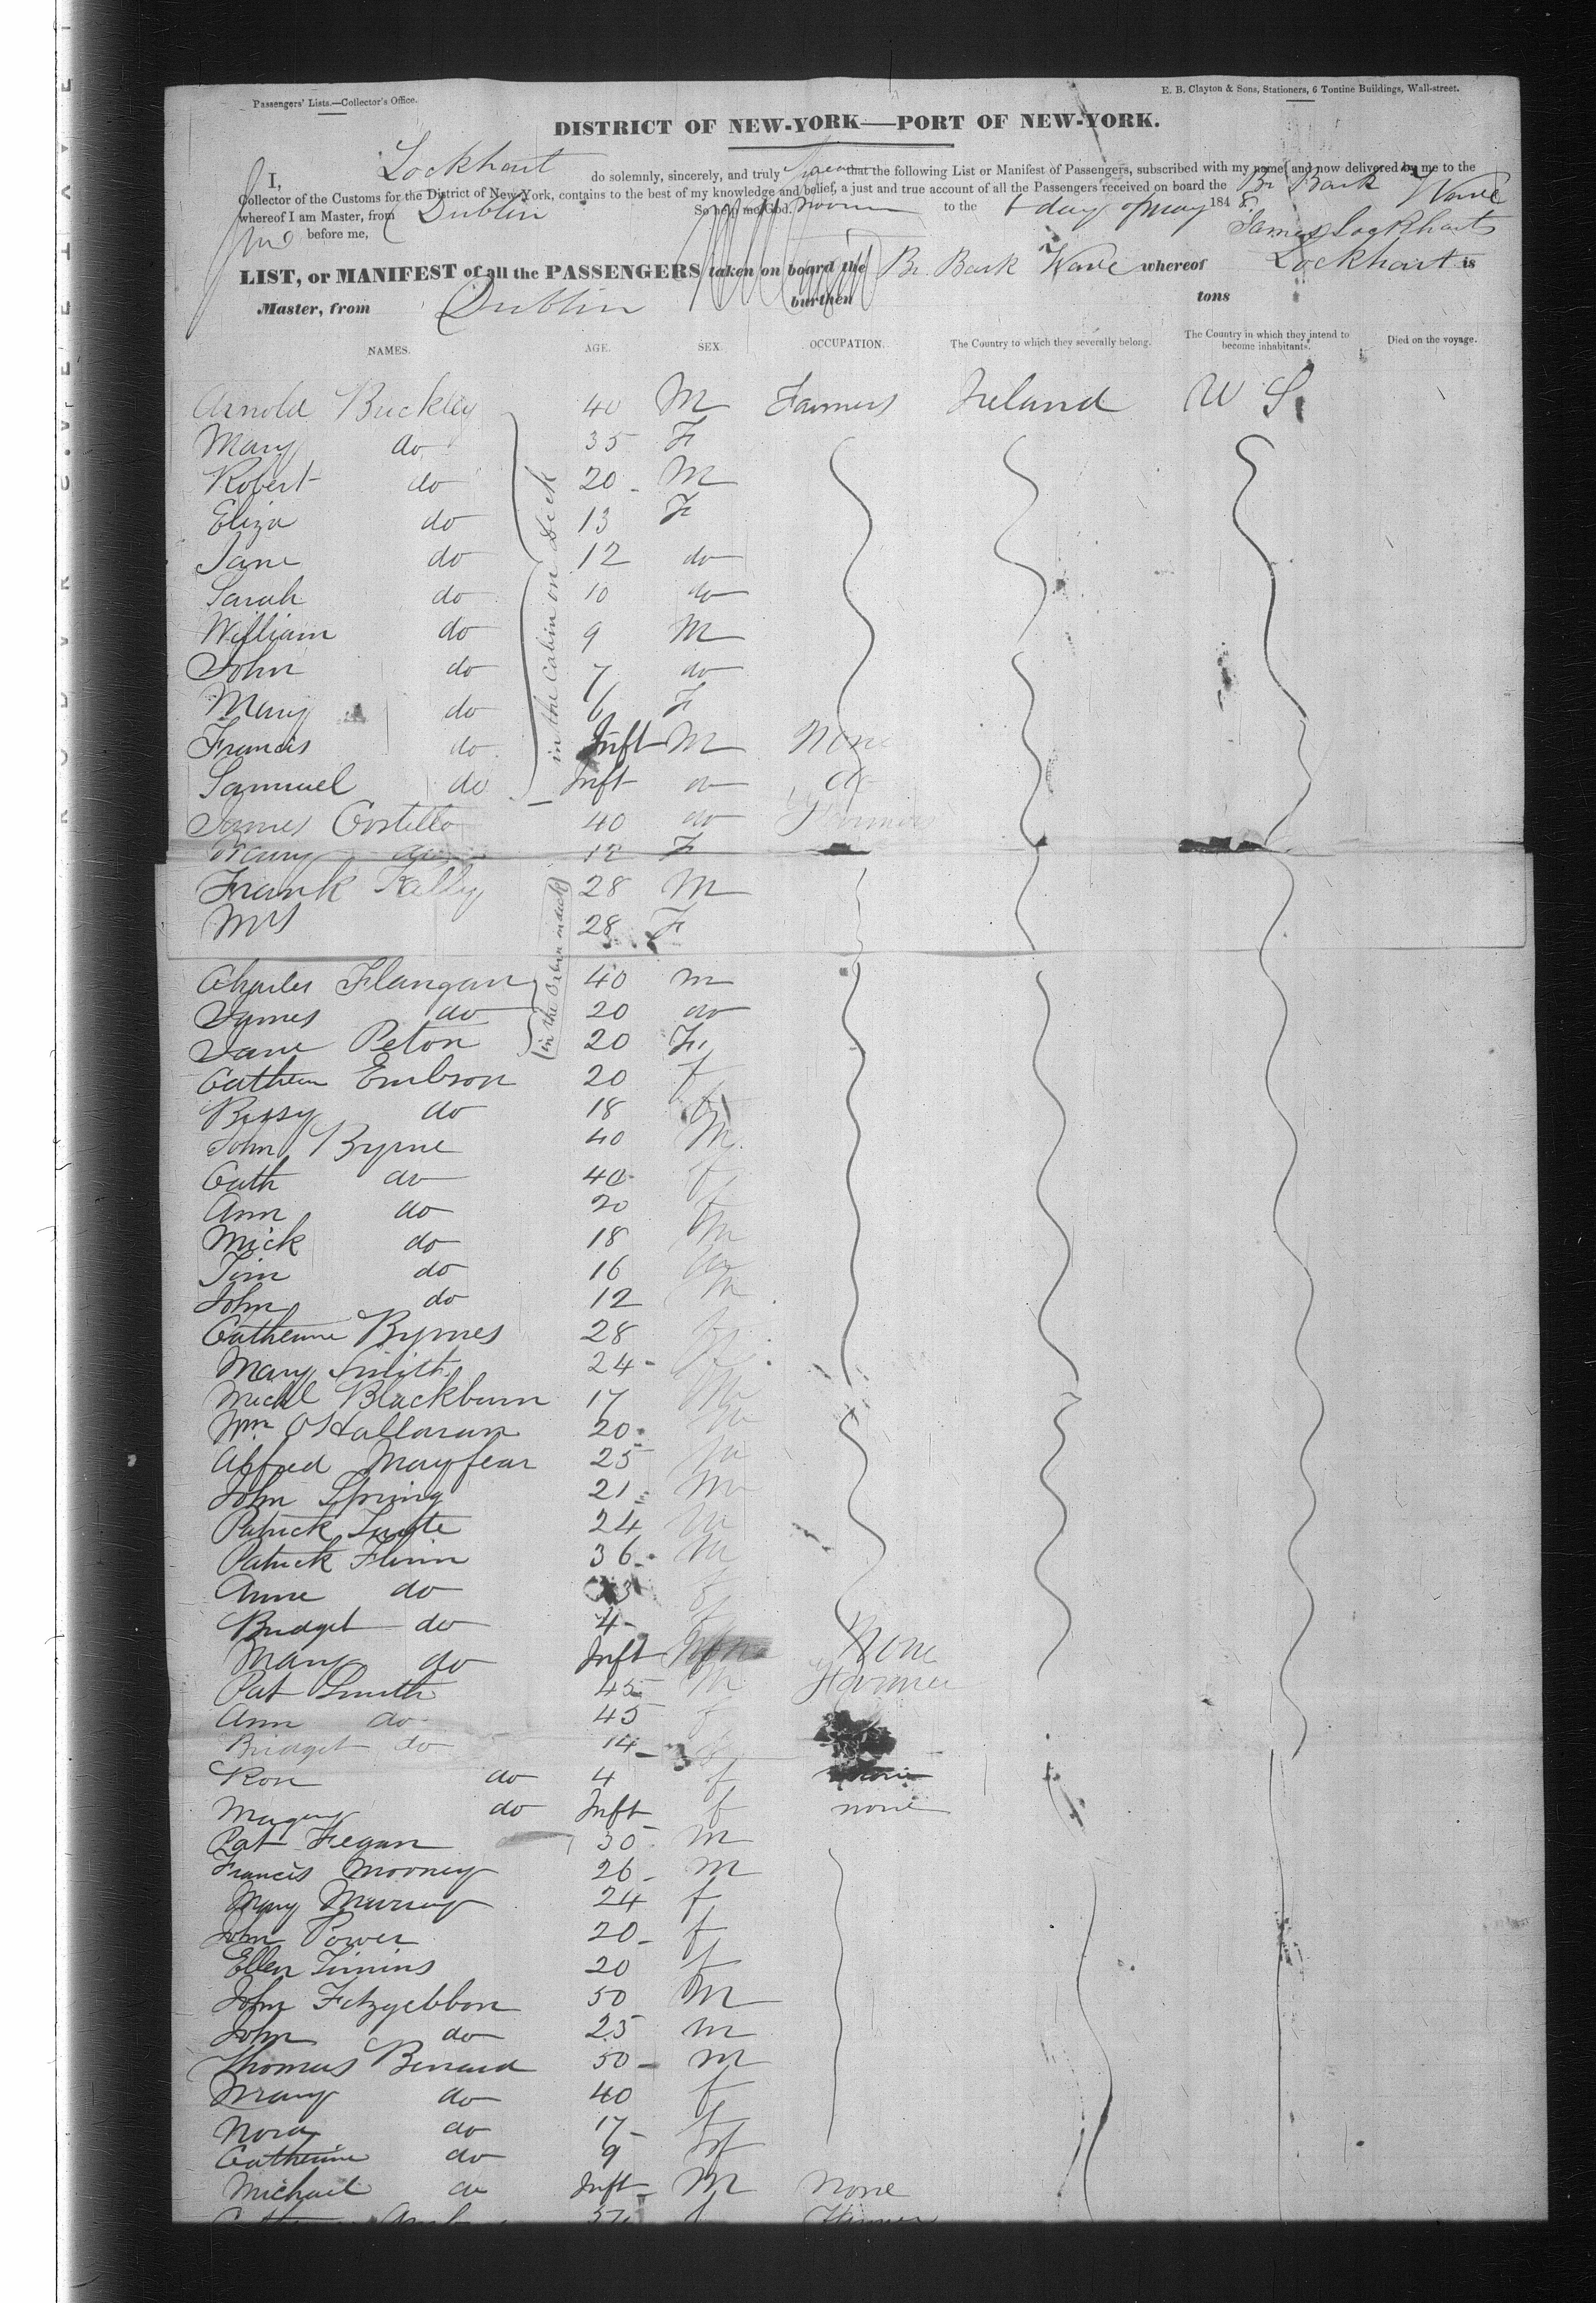 Passengers' Lists.—Collector's Office.
E. B. Clayton & Sons, Stationers, 6 Tontine Buildings, Wall-street.
DISTRICT OF NEW-YORK—PORT OF NEW-YORK.
I, Lockhart do solemnly, sincerely, and truly that the following List or Manifest of Passengers, subscribed with my name and now delivered by me to the
Collector of the Customs for the District of New-York, contains to the best of my knowledge and belief, a just and true account of all the Passengers received on board the Br Bark Wave
whereof I am Master, from Dublin So help me God.
to the day of May 1848.
before me, James Lockhart
LIST, or MANIFEST of all the PASSENGERS taken on board the Br. Bark Wave whereof Lockhart is
Master, from Dublin burthen tons
NAMES. AGE. SEX. OCCUPATION. The Country to which they severally belong. The Country in which they intend to become inhabitants. Died on the voyage.
Arnold Buckley 40 M Farmers Ireland U S.
Mary do 35 F
Robert do 20 M
Eliza do 13 F
Jane do 12 do
Sarah do 10 do
William do 9 M
John do 7 do
Mary do 6 F
Francis do Inft M None
Samuel do Inft do do
in the Cabin on Deck
James Costello 40 do Farmer
Mary do 12 F
Frank Kelly 28 M
Mrs 28 F
Charles Flangan 40 m
James do 20 do
Jane Peton 20 F
in the Cabin on deck
Cathern 20 f
Bessy do 18 f
John Byrne 40 M
Cath do 40 f
Ann do 20 f
Mick do 18 m
Tim do 16 m
John do 12 m
Catherine Byrnes 28 f
Mary Smith 24 f
Michl Blackburn 17 m
Wm O'Hallaran 20 m
Alfred Mayfear 25 m
John Spring 21 m
Patrick 24 m
Patrick Flinn 36 m
Anne do f
Bridget do 4 f
Mary do Inft None
Pat Smith 45 M Farmer
Ann do 45 f
Bridget do 14 f
do 4 f
do Inft f none
Pat Fegan 30 m
Francis Mooney 26 m
Mary Murray 24 f
John Power 20 f
Ellen Timins 20 f
John Fitzgebbon 50 M
John do 25 m
Thomas 50 m
Mary do 40 f
Nora do 17 f
Catherine do 9 f
Michael do Inft M none